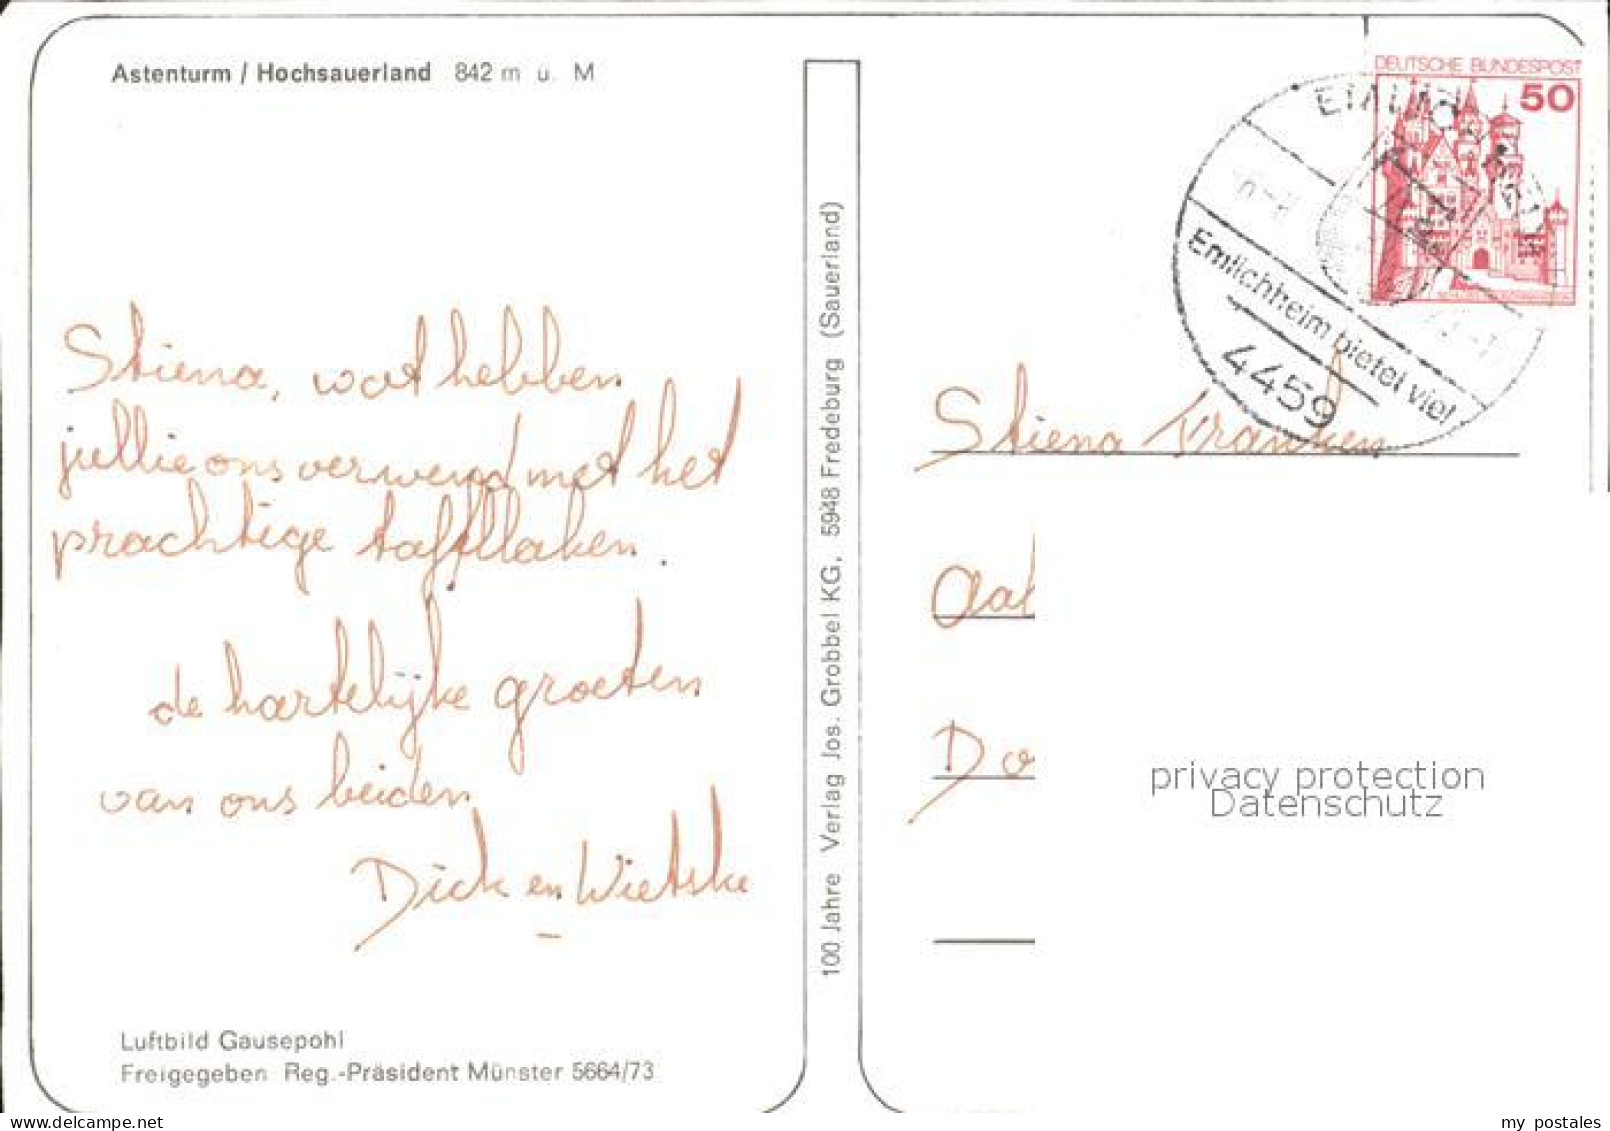 Astenturm / Hochsauerland 842 m ü. M
Stiena, wat hebben
jullie ons verwend met het
prachtige taffllaken.
de hartelijke groeten
van ons beiden
Dick en Wietske
Luftbild Gausepohl
Freigegeben Reg.-Präsident Münster 5664/73
100 Jahre Verlag Jos. Grobbel KG, 5948 Fredeburg (Sauerland)
DEUTSCHE BUNDESPOST
50
Emlichheim bietet viel
4459
Stiena Franken
privacy protection
Datenschutz
delcampe.net
my_postales